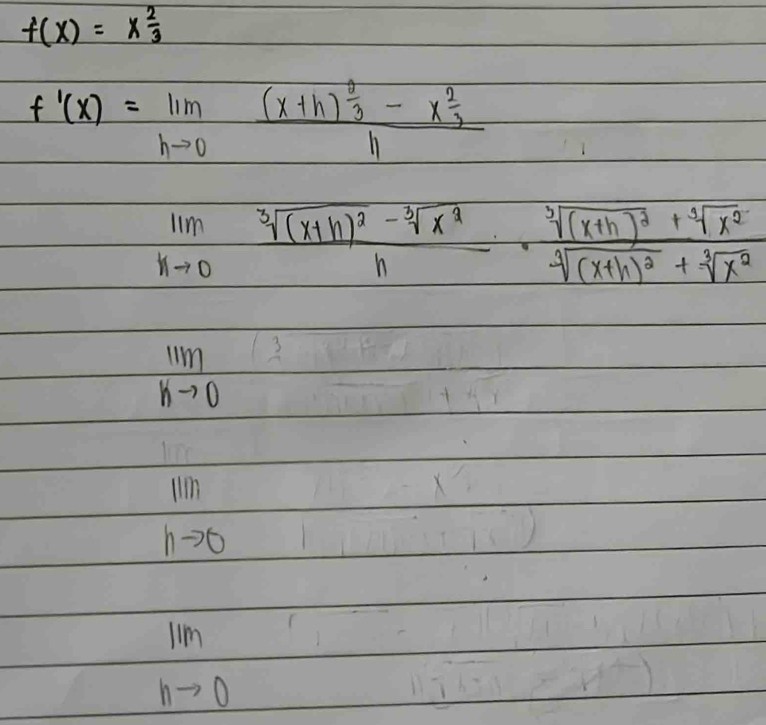 f(x) = x^(2/3)
f'(x) = lim h→0 ((x+h)^(2/3) - x^(2/3)) / h
lim h→0 (∛(x+h)² - ∛x²) / h · (∛(x+h)² + ∛x²) / (∛(x+h)² + ∛x²)
lim h→0
lim h→0
lim h→0